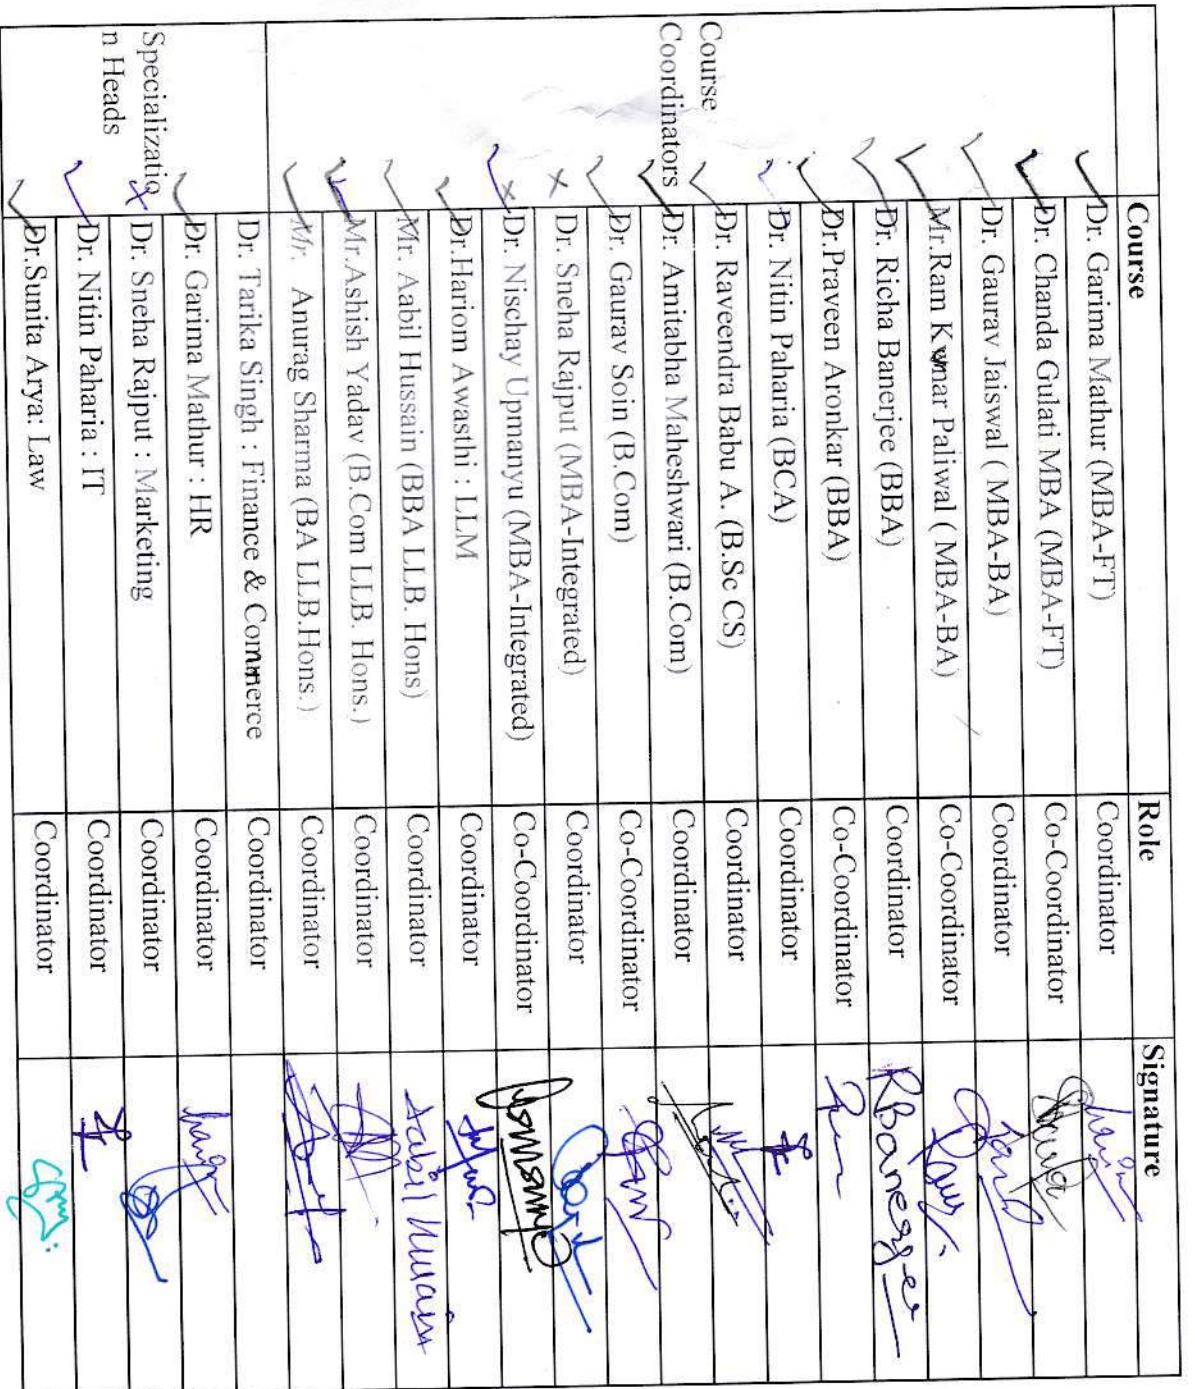 Course Role Signature
Course
Coordinators
Dr. Garima Mathur (MBA-FT) Coordinator
Dr. Chanda Gulati MBA (MBA-FT) Co-Coordinator
Dr. Gaurav Jaiswal ( MBA-BA) Coordinator
Mr.Ram Kumar Paliwal ( MBA-BA) Co-Coordinator
Dr. Richa Banerjee (BBA) Coordinator RBanerjee
Dr.Praveen Aronkar (BBA) Co-Coordinator
Dr. Nitin Paharia (BCA) Coordinator
Dr. Raveendra Babu A. (B.Sc CS) Coordinator
Dr. Amitabha Maheshwari (B.Com) Coordinator
Dr. Gaurav Soin (B.Com) Co-Coordinator
Dr. Sneha Rajput (MBA-Integrated) Coordinator
Dr. Nischay Upmanyu (MBA-Integrated) Co-Coordinator
Dr.Hariom Awasthi : LLM Coordinator
Mr. Aabil Hussain (BBA LLB. Hons) Coordinator Aabil Hussain
Mr.Ashish Yadav (B.Com LLB. Hons.) Coordinator
Mr. Anurag Sharma (BA LLB.Hons.) Coordinator
Specializatio
n Heads
Dr. Tarika Singh : Finance & Commerce Coordinator
Dr. Garima Mathur : HR Coordinator
Dr. Sneha Rajput : Marketing Coordinator
Dr. Nitin Paharia : IT Coordinator
Dr.Sunita Arya: Law Coordinator